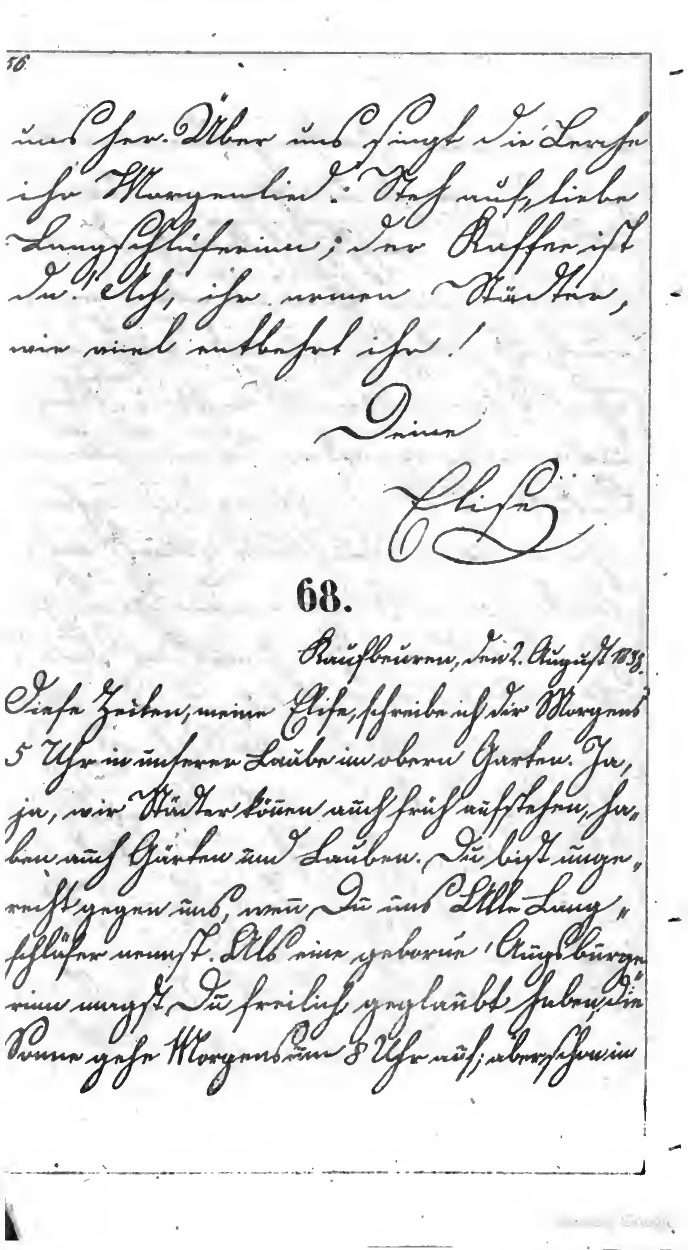 56.
uns her. Über uns singt die Lerche
ihr Morgenlied: Steh auf, liebe
Langschläferinn; der Kaffee ist
da! Ach, ihr armen Städter,
wie viel entbehrt ihr!
Deine
Elise
68.
Kaufbeuren, den 2. August 1838.
Diese Zeilen, meine Elise, schreibe ich dir Morgens
5 Uhr in unserer Laube im obern Garten. Ja,
ja, wir Städter können auch früh aufstehen, ha„
ben auch Gärten und Lauben. Du bist unge„
recht gegen uns, wenn Du uns Alle Lang„
schläfer nennst. Als eine geborne Augsburge„
rinn magst Du freilich geglaubt haben, die
Sonne gehe Morgens um 8 Uhr auf; aber schon im